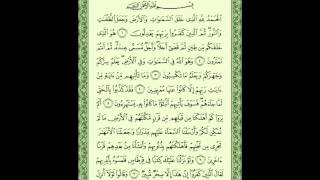 بِسْمِ ٱللَّهِ ٱلرَّحْمَٰنِ ٱلرَّحِيمِ
ٱلْحَمْدُ لِلَّهِ ٱلَّذِى خَلَقَ ٱلسَّمَٰوَٰتِ وَٱلْأَرْضَ وَجَعَلَ ٱلظُّلُمَٰتِ
وَٱلنُّورَ ثُمَّ ٱلَّذِينَ كَفَرُوا۟ بِرَبِّهِمْ يَعْدِلُونَ ١ هُوَ ٱلَّذِى
خَلَقَكُم مِّن طِينٍ ثُمَّ قَضَىٰٓ أَجَلًا وَأَجَلٌ مُّسَمًّى عِندَهُۥ ثُمَّ أَنتُمْ
تَمْتَرُونَ ٢ وَهُوَ ٱللَّهُ فِى ٱلسَّمَٰوَٰتِ وَفِى ٱلْأَرْضِ يَعْلَمُ سِرَّكُمْ
وَجَهْرَكُمْ وَيَعْلَمُ مَا تَكْسِبُونَ ٣ وَمَا تَأْتِيهِم مِّنْ ءَايَةٍ مِّنْ
ءَايَٰتِ رَبِّهِمْ إِلَّا كَانُوا۟ عَنْهَا مُعْرِضِينَ ٤ فَقَدْ كَذَّبُوا۟ بِٱلْحَقِّ
لَمَّا جَآءَهُمْ فَسَوْفَ يَأْتِيهِمْ أَنۢبَٰٓؤُا۟ مَا كَانُوا۟ بِهِۦ يَسْتَهْزِءُونَ ٥ أَلَمْ
يَرَوْا۟ كَمْ أَهْلَكْنَا مِن قَبْلِهِم مِّن قَرْنٍ مَّكَّنَّٰهُمْ فِى ٱلْأَرْضِ مَا لَمْ
نُمَكِّن لَّكُمْ وَأَرْسَلْنَا ٱلسَّمَآءَ عَلَيْهِم مِّدْرَارًا وَجَعَلْنَا ٱلْأَنْهَٰرَ
تَجْرِى مِن تَحْتِهِمْ فَأَهْلَكْنَٰهُم بِذُنُوبِهِمْ وَأَنشَأْنَا مِنۢ بَعْدِهِمْ قَرْنًا
ءَاخَرِينَ ٦ وَلَوْ نَزَّلْنَا عَلَيْكَ كِتَٰبًا فِى قِرْطَاسٍ فَلَمَسُوهُ بِأَيْدِيهِمْ
لَقَالَ ٱلَّذِينَ كَفَرُوٓا۟ إِنْ هَٰذَآ إِلَّا سِحْرٌ مُّبِينٌ ٧ وَقَالُوا۟ لَوْلَآ أُنزِلَ